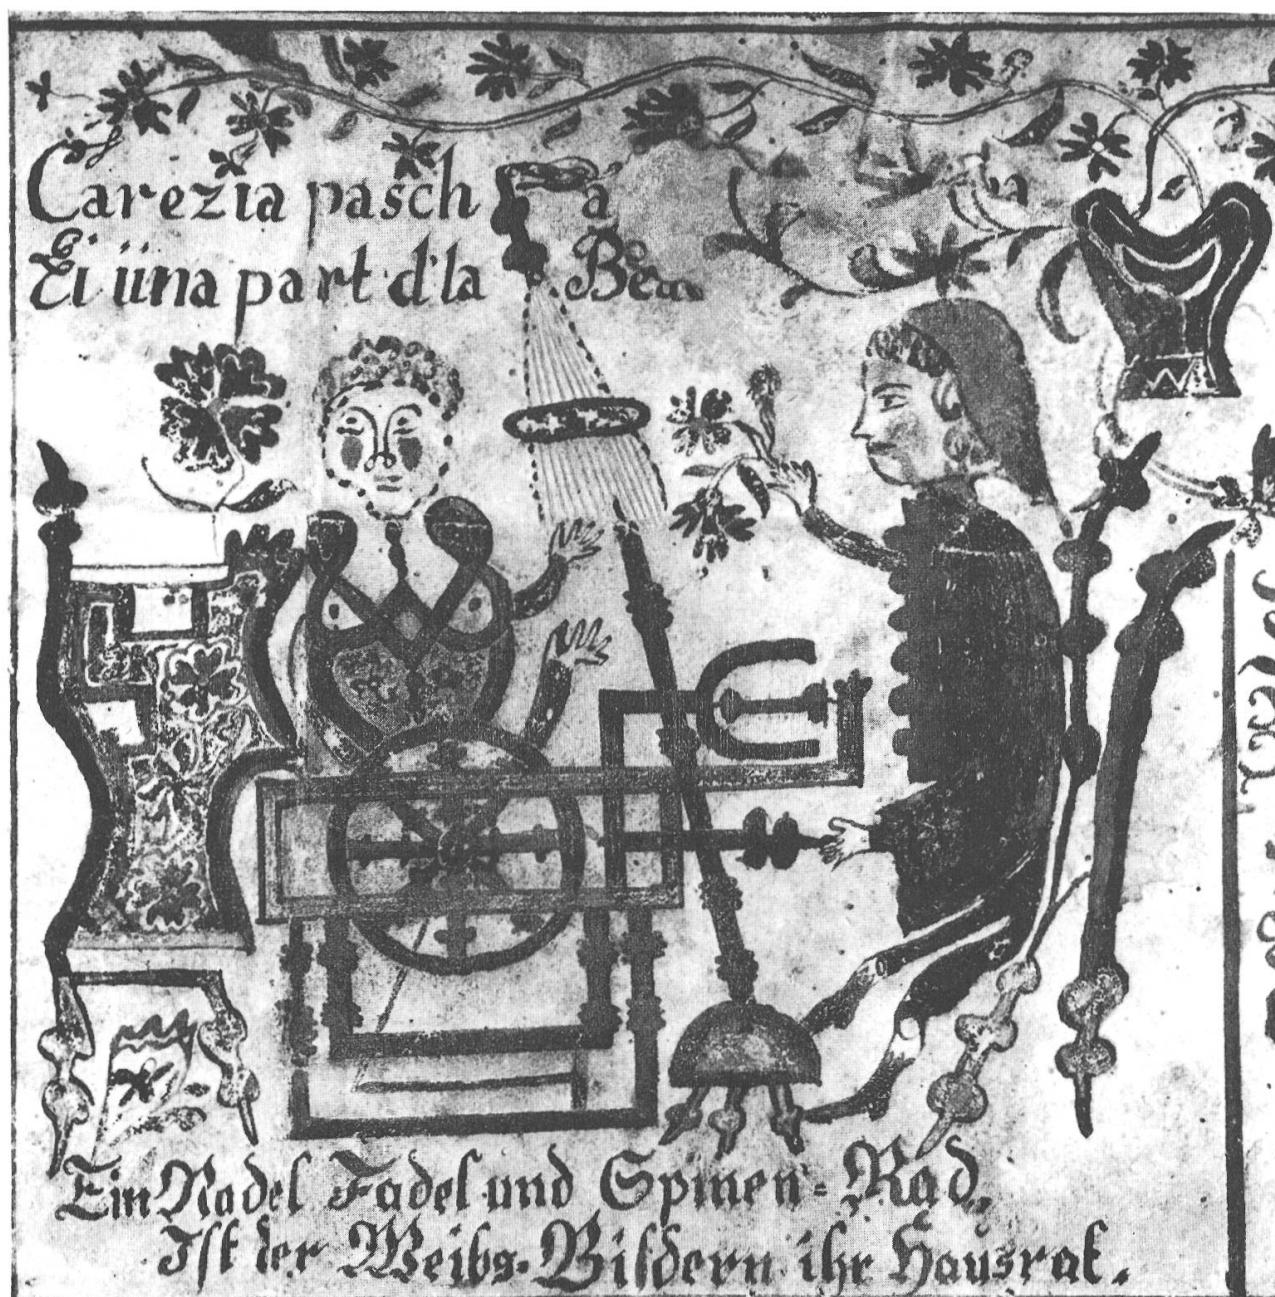 Carezia pasch a
Ei üna part d'la
Ein Nadel Fadel und Spinen=Rad,
Ist der Weibs-Bildern ihr Hausrat.